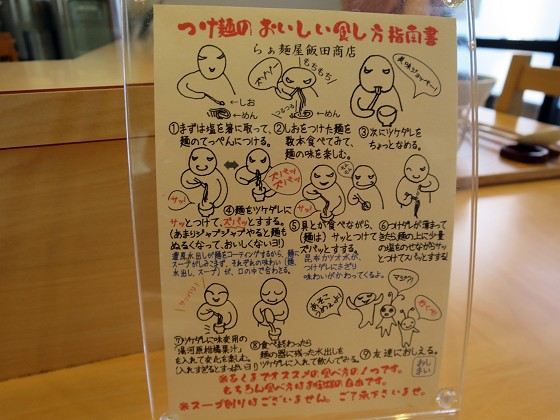 つけ麺のおいしい食し方指南書
らぁ麺屋飯田商店
ズズッ
もちもち
つるつる
美味ジョッキー!
←しお
←めん
←しお
←めん
①まずは塩を箸に取って、
麺のてっぺんにつける。
②しおをつけた麺を
数本食べてみて、
麺の味を楽しむ。
③次にツケダレを
ちょっとなめる。
サッ!
ズバッ
ズバッ
サッ!
ズバッ
④麺をツケダレに
サッとつけて、ズバッとすする。
(あまりジャブジャブやると麺も
ぬるくなって、おいしくないヨ!)
昆布水出しが麺をコーティングするから、麺に
スープがしみこまず、それぞれの味わい(麺、
水出し、スープ)が、口の中で合わさる。
⑤具とか食べながら、
(麺は)サッとつけて
ズバッとすする。
昆布カツオ水が、
つけダレにまざり
味わいがかわってくるよ。
⑥つけダレが薄まって
きたら、麺の上に少量
の塩をのせながらサッ
とつけてズバッとすする
サッパリ!
あそこ
うめぇよ!
マジで?
行くべ
⑦ツケダレに味変用の
「湯河原柑橘果汁」
を入れて変化を楽しむ。
(入れすぎるとすっぱいヨ!)
⑧食べ終わったら
麺の器に残った水出しを
ツケダレに入れて飲んでみる。
⑨友達におしえる。
おしまい
※あくまでオススメの食べ方の1つです。
もちろん食べ方はお客様の自由です。
※スープ割りはございません。ご了承下さいませ。